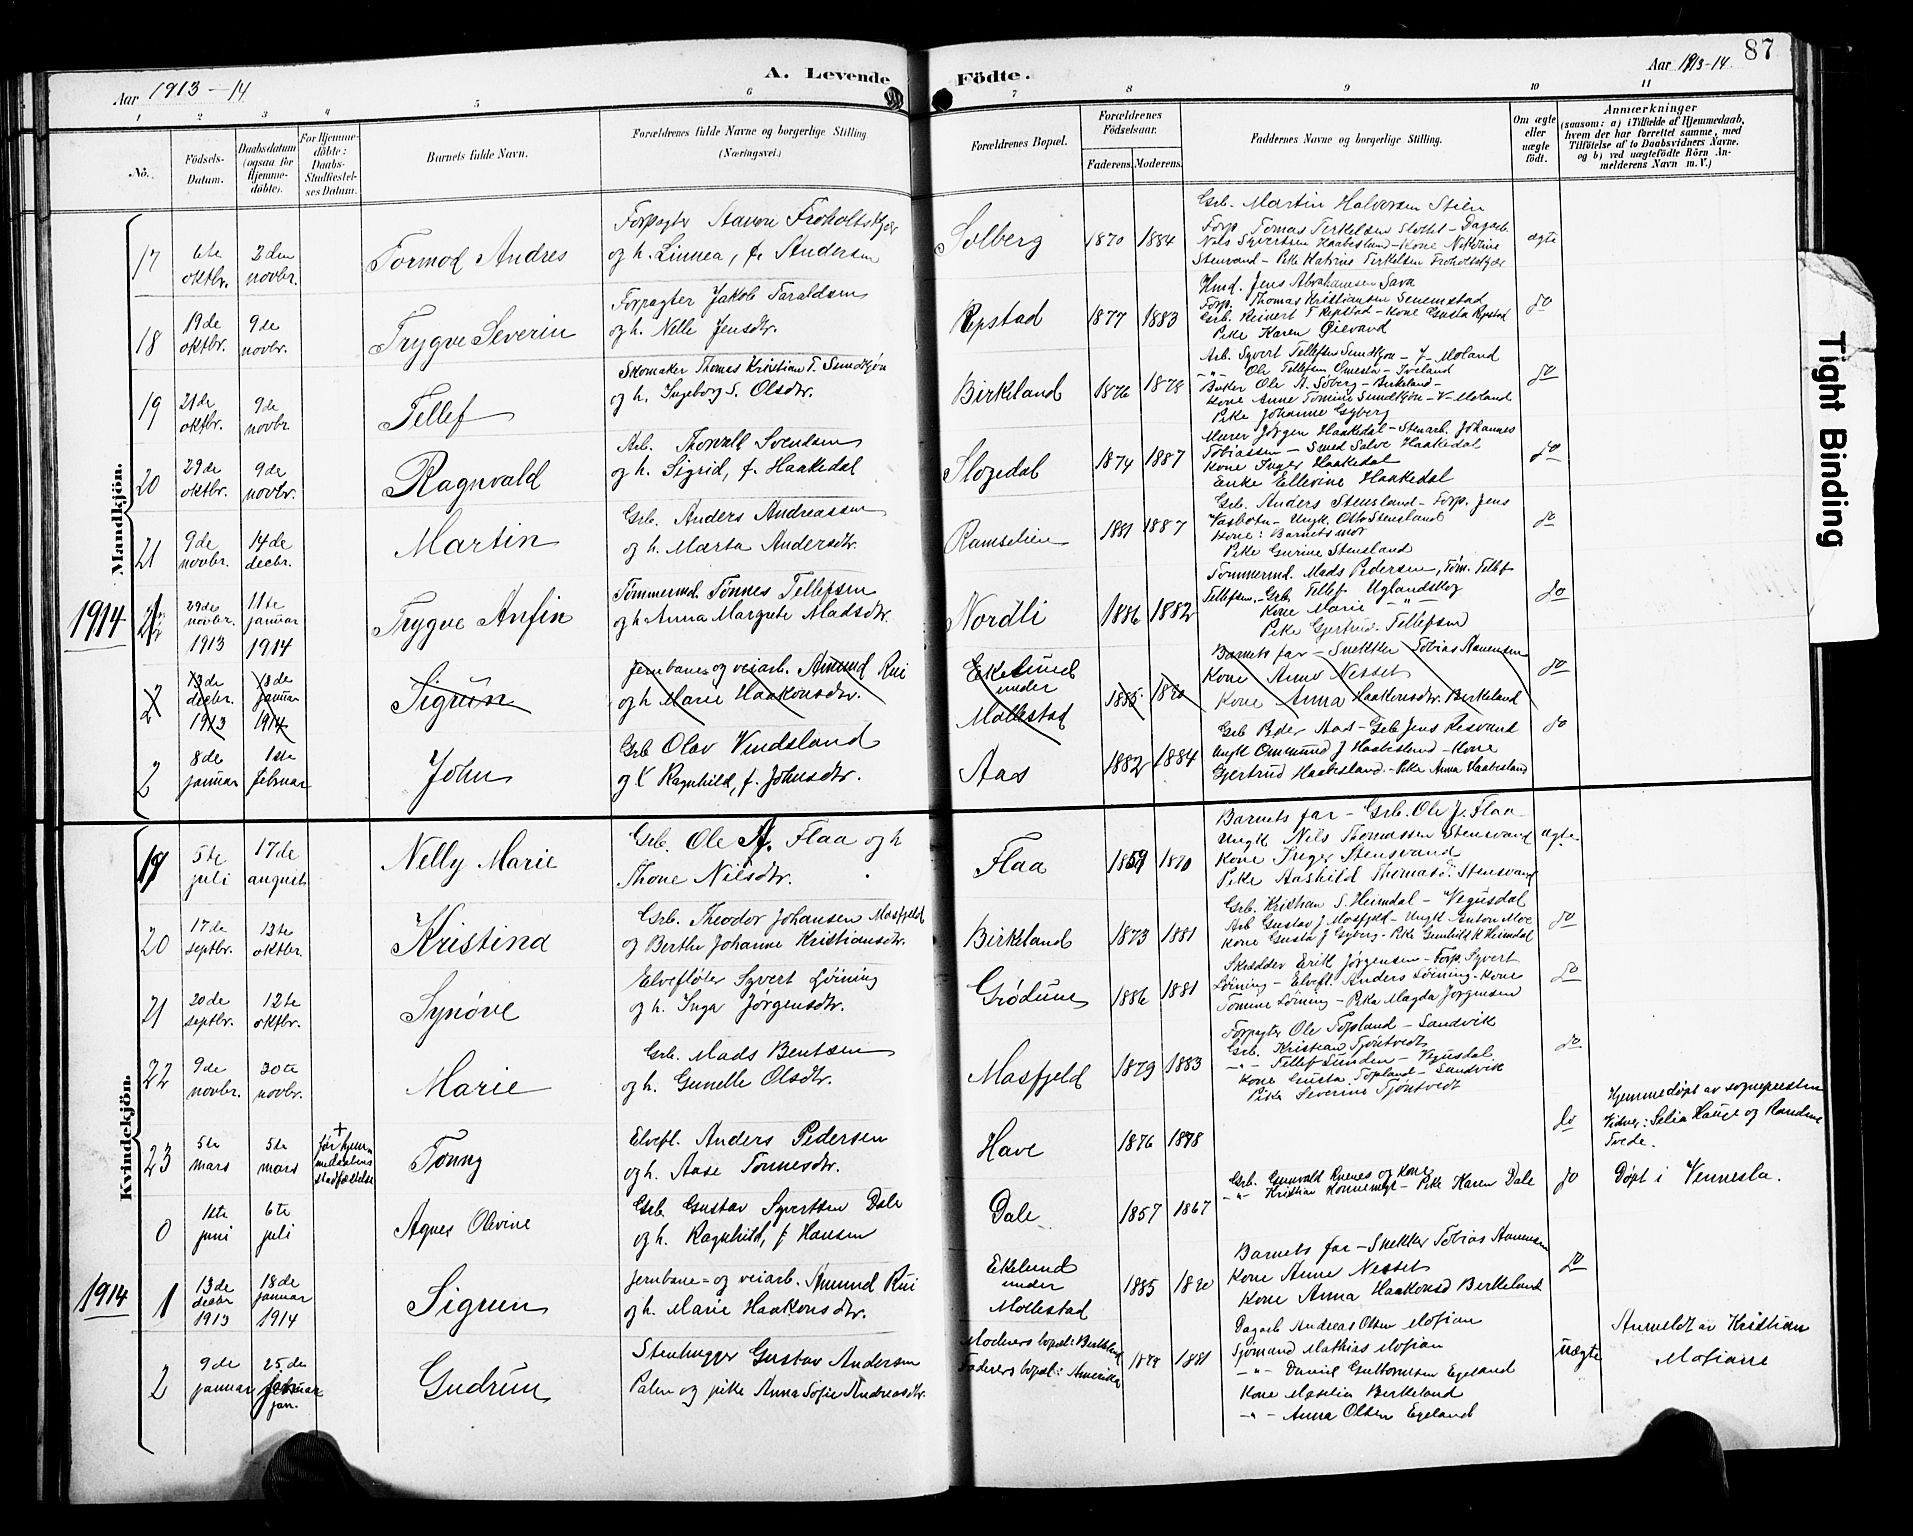 87
Aar 1913-14
A. Levende
Födte.
Aar 1913-14
1 2 3 4 5 6 7 8 9 10 11
No.
Födsels-Datum.
Daabsdatum (ogsaa for Hjemmedöbte).
For Hjemmedöbte: Daabs-Stadfæstelses Datum.
Barnets fulde Navn.
Forældrenes fulde Navne og borgerlige Stilling (Næringsvei.)
Forældrenes Bopæl.
Forældrenes Födselsaar.
Faderens. Moderens.
Faddernes Navne og borgerlige Stilling.
Om ægte eller uægte födt.
Anmærkninger
(saasom: a) i Tilfælde af Hjemmedaab, hvem der har forrettet samme, med Tilföielse af to Daabsvidners Navne, og b) ved uægtefödte Börn Anmelderens Navn m. V.)
Tight Binding
Mandkjön.
17 6te oktbr. 2den novbr. Tormod Andres
Forpagter Aavon Froholtskjær
og h. Linnea, f. Andersen
Solberg 1870 1884
Grb. Martin Halvorsen Stien
Forp. Tomas Terkelsen Slottet - Dagarb.
Nils Syvertsen Haabesland - Kone Nikoline
Stenvand - Pike Katrine Terkelsen Froholtskjær
ægte
18 19de oktbr. 9de novbr. Trygve Severin
Forpagter Jakob Taraldsen
og h. Nelle Jensdtr.
Repstad 1877 1883
Hmd. Jens Abrahamsen Sava
Forp. Thomas Kristiansen Senemstad
Grb. Reinert T Repstad - Kone Gusta Repstad
Pike Karen Øievand
do
19 21de oktbr. 9de novbr. Tellef
Skomaker Thomes Kristian T. Sundtjøn
og h. Ingeborg S. Olsdtr.
Birkeland 1876 1878
Arb. Syvert Tellefsen Sundtjøn - Y. Moland
-"- Ole Tellefsen Omesta - Iveland
Bøker Ole A. Søberg - Birkeland -
Kone Anne Tomine Sundtjøn - V. Moland
Pike Johanne Gyberg
do
20 29de oktbr. 9de novbr. Ragnvald
Arb. Thorvald Svendsen
og h. Sigrid, f. Haakedal
Slogedal 1874 1887
Murer Jørgen Haakedal - Stenarb. Johannes
Tobiassen - Smed Salve Haakedal
Kone Inger Haakedal
Enke Ellevine Haakedal
do
21 9de novbr. 14de decbr. Martin
Grb. Anders Andreassen
og h. Marta Andersdtr.
Ramselien 1881 1887
Grb. Anders Stensland - Forp. Jens
Vasbotn - Ungk. Otto Stensland
Kone: Barnets mor
Pike Gurine Stensland
do
1914
29de novbr. 1913 11te januar 1914 Trygve Anfin
Tømmermd. Tønnes Tellefsen
og h. Anna Margrete Madsdtr.
Nordli 1886 1882
Tømmermd. Mads Pedersen, Tøm. Tellef
Tellefsen, Grb Tellef Uglandskog
Kone Marie -"-
Pike Gjertrud Tellefsen
do
2 13de decbr. 1913 18de januar 1914 Sigrun
Jernbane- og veiarb. Amund Rui
og h. Marie Haakonsdtr.
Ekelund under Mollestad 1885 1890
Barnets far - Snekker Tobias Aanensen
Kone Anne Nesset
Kone Anna Haakonsdtr. Birkeland
do
2 8de januar 1ste februar John
Grb Olav Vindsland
og k Ragnhild, f. Johnsdtr.
Aas 1882 1884
Grb Peder Aas - Grb Jens Resvand
Ungk Omund J Haabesland - Kone
Gjertrud Haabesland - Pike Anna Haabesland
do
Kvindekjön.
19 5te juli 17de august Nelly Marie
Grb. Ole A. Flaa og h
Thone Nilsdtr.
Flaa 1859 1870
Barnets far - Grb. Ole J. Flaa
Ungk Nils Thomassen Stensvand
Kone Inger Stensvand
Pike Aashild Thomasd. Stensvand
ægte
20 17de septbr. 12te oktbr. Kristina
Grb. Theodor Johansen Mosfjeld
og Berthe Johanne Kristiansdtr.
Birkeland 1873 1881
Grb. Kristian S. Heimdal - Vegusdal
Arb Gustav J Mosfjeld - Ungk Anton Moe
Kone Gusta J Gyberg - Pike Gunhild K Heimdal
do
21 20de septbr. 12te oktbr. Synøve
Elvefløter Syvert Løining
og h. Inga Jørgensdtr.
Grødum 1886 1881
Skrædder Erik Jørgensen - Forp. Syvert
Løining - Elvefl. Anders Løining - Kone
Tomine Løining - Pike Magda Jørgensen
do
22 9de novbr. 30te novbr. Marie
Grb. Mads Bentsen
og h. Gunelle Olsdtr.
Mosfjeld 1879 1883
Forpagter Ole Topland - Sandvik
Grb. Kristian Tjøntvedt
-"- Tellef Sunden - Vegusdal
Kone Gusta Topland - Sandvik
Pike Severine Tjøntvedt
do
23 5te mars 5te mars + før hjemmedaabens stadfæstelse Tonny
Elvefl. Anders Pedersen
og h. Aase Tonnesdtr.
Have 1876 1878
do
Hjemmedøpt av sognepresten
Vidner: Selia Hauge og Randine
Tvede.
0 1ste juni 6te juli Agnes Olevine
Grb. Gustav Syvertsen Dale
og h. Ragnhild, f Hansen
Dale 1857 1867
Grb. Gunvald Renes og kone
-"- Kristian Honnemyr - Pike Karen Dale
do
Døpt i Vennesla.
1914
1 13de decbr 1913 18de januar 1914 Sigrun
Jernbane= og veiarb. Amund Rui
og h. Marie Haakonsdtr.
Ekelund under Mollestad 1885 1890
Barnets far - Snekker Tobias Aanensen
Kone Anne Nesset
Kone Anna Haakonsd Birkeland
do
2 9de januar 25de jan. Gudrun
Stenhugger Gustav Andersen
Palm og pike Anna Sofie Andreasdtr.
Moderens bopæl: Birkeland
Faderens bopæl: Amerika 1879 1881
Dagarb Andreas Olsen Mosian
Sjømand Mathias Mosian
-"- Daniel Guttormsen Egeland
Kone Maselia Birkeland
-"- Anna Olsen Egeland
uægte
Anmeldt av Kristian
Mosiane